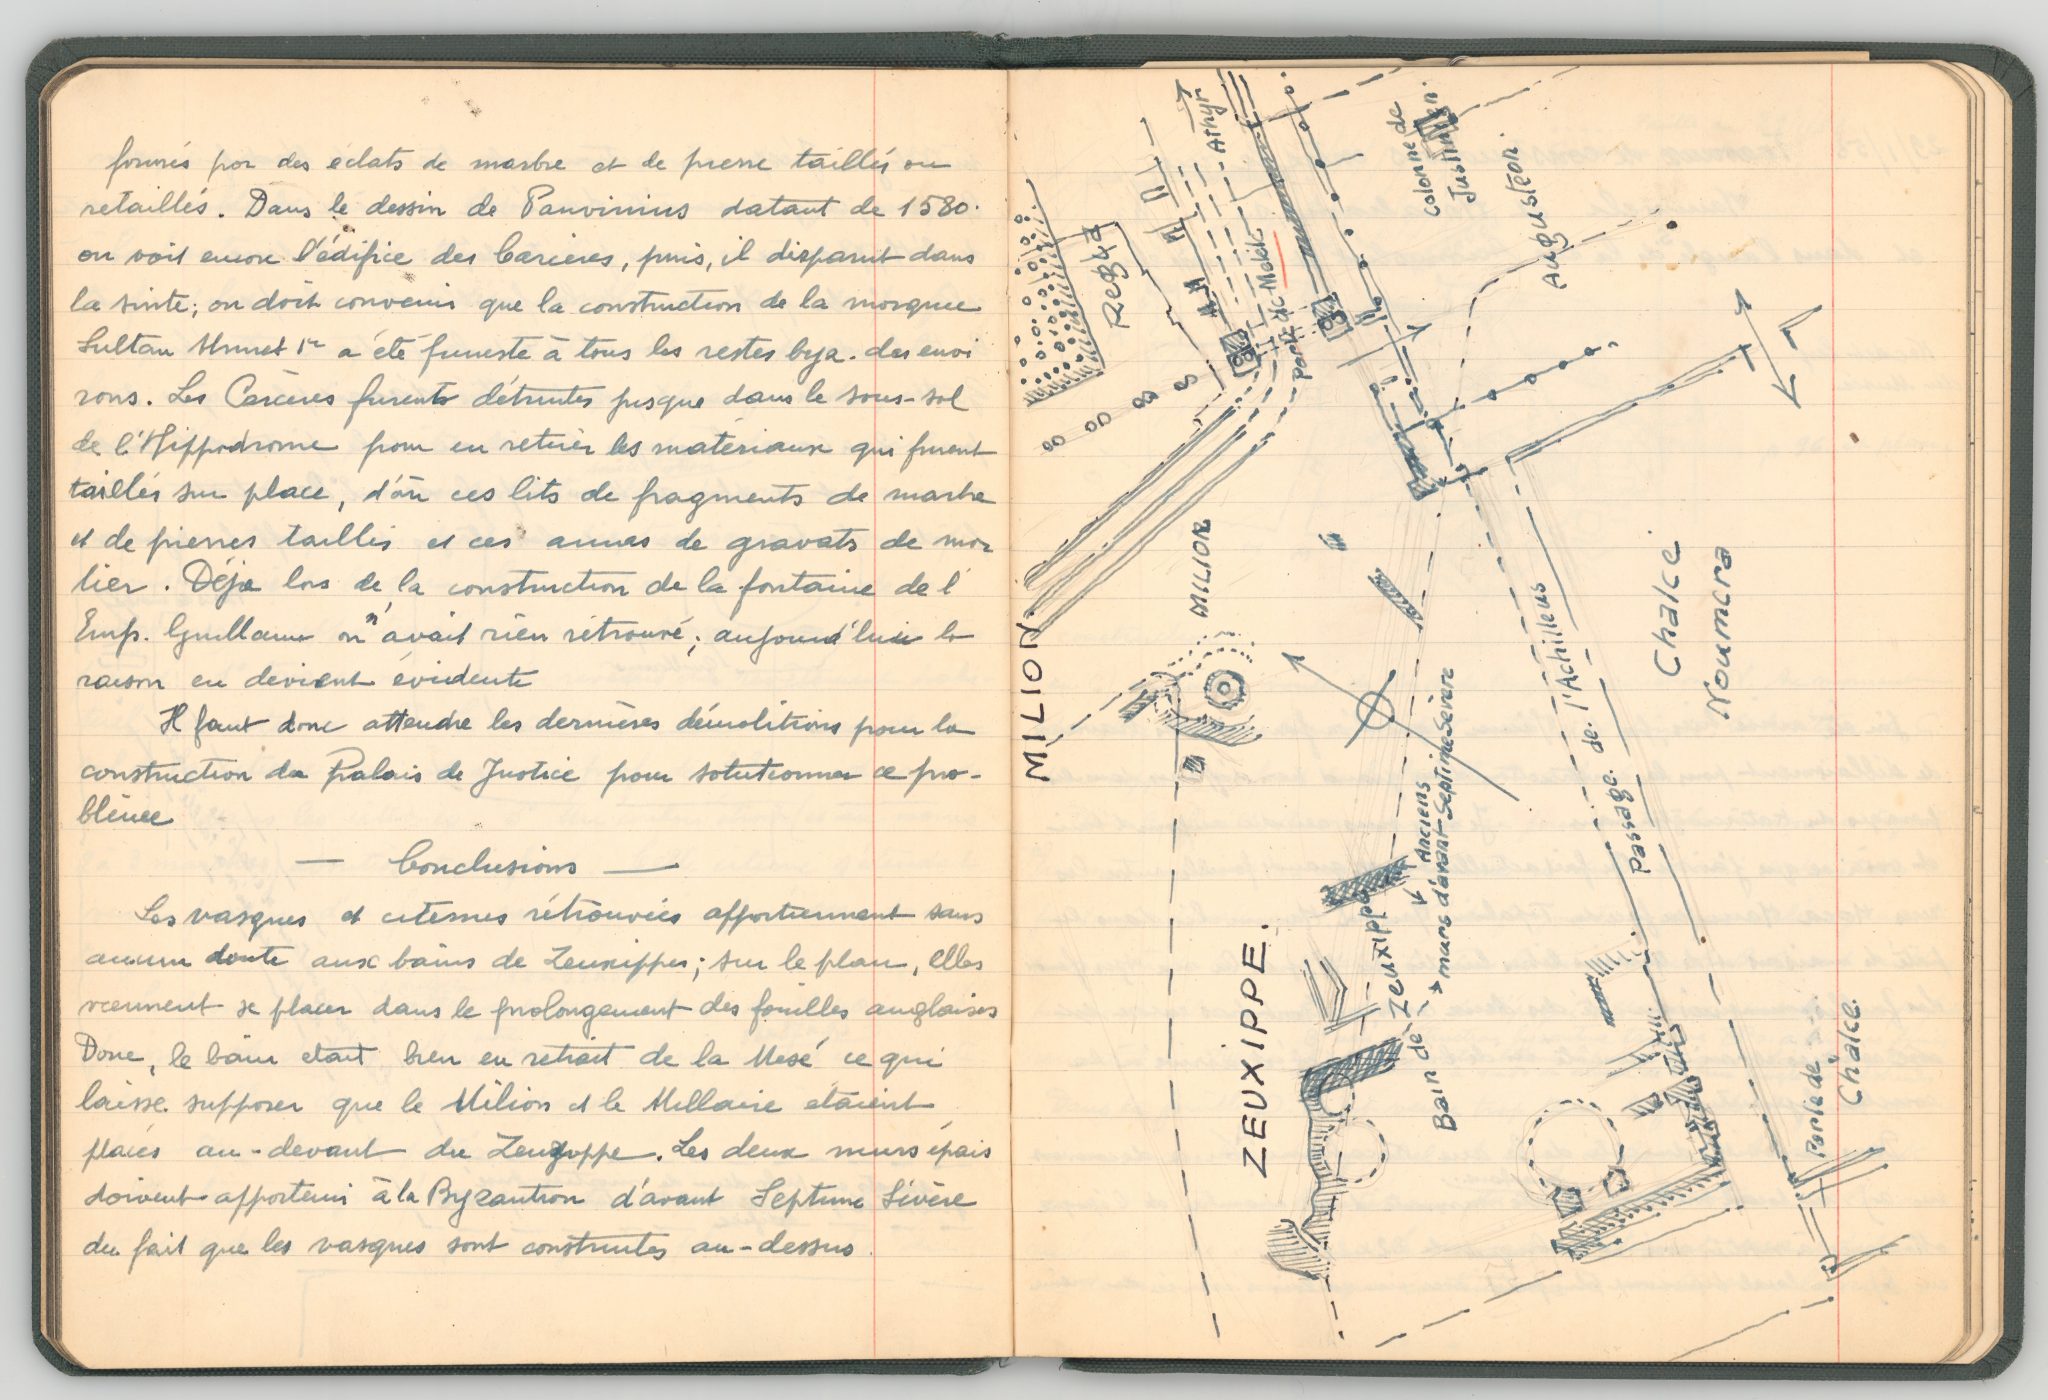 formés par des éclats de marbre et de pierre taillés ou
retaillés. Dans le dessin de Panvinius datant de 1580.
on voit encore l'édifice des Carceres, puis, il disparut dans
la suite; on doit convenir que la construction de la mosquee
Sultan Ahmet 1er a été funeste à tous les restes byz. des envi
rons. Les Carceres furent détruites jusque dans le sous-sol
de l'Hippodrome pour en retirer les matériaux qui furent
taillés sur place, d'où ces lits de fragments de marbre
et de pierres taillés et ces amas de gravats de mor
tier. Déja lors de la construction de la fontaine de l'
Emp. Guillaume on n'avait rien rétrouvé; aujourd'hui la
raison en devient évidente
Il faut donc attendre les dernières démolitions pour la
construction du Palais de Justice pour solutionner ce pro-
blème
— Conclusions —
Les vasques et citernes rétrouvées appartiennent sans
aucun doute aux bains de Zeuxippe; sur le plan, elles
viennent se placer dans le prolongement des fouilles anglaises
Donc, le bain etait bien en retrait de la Mesé ce qui
laisse supposer que le Milion et le Millaire etaient
placés au-devant du Zeuxippe. Les deux murs épais
doivent appartenir à la Byzantion d'avant Septime Sévère
du fait que les vasques sont construites au-dessus
Regia
Athyr
Porte de Mélék
colonne de
Justinien.
Augusteon.
MILION.
MILION
ZEUXIPPE.
Bain de Zeuxippe
Anciens
murs d'avant Septime Sévère
Passage de l'Achilleus
Chalcé
Noumera
Porte de
Chalce.